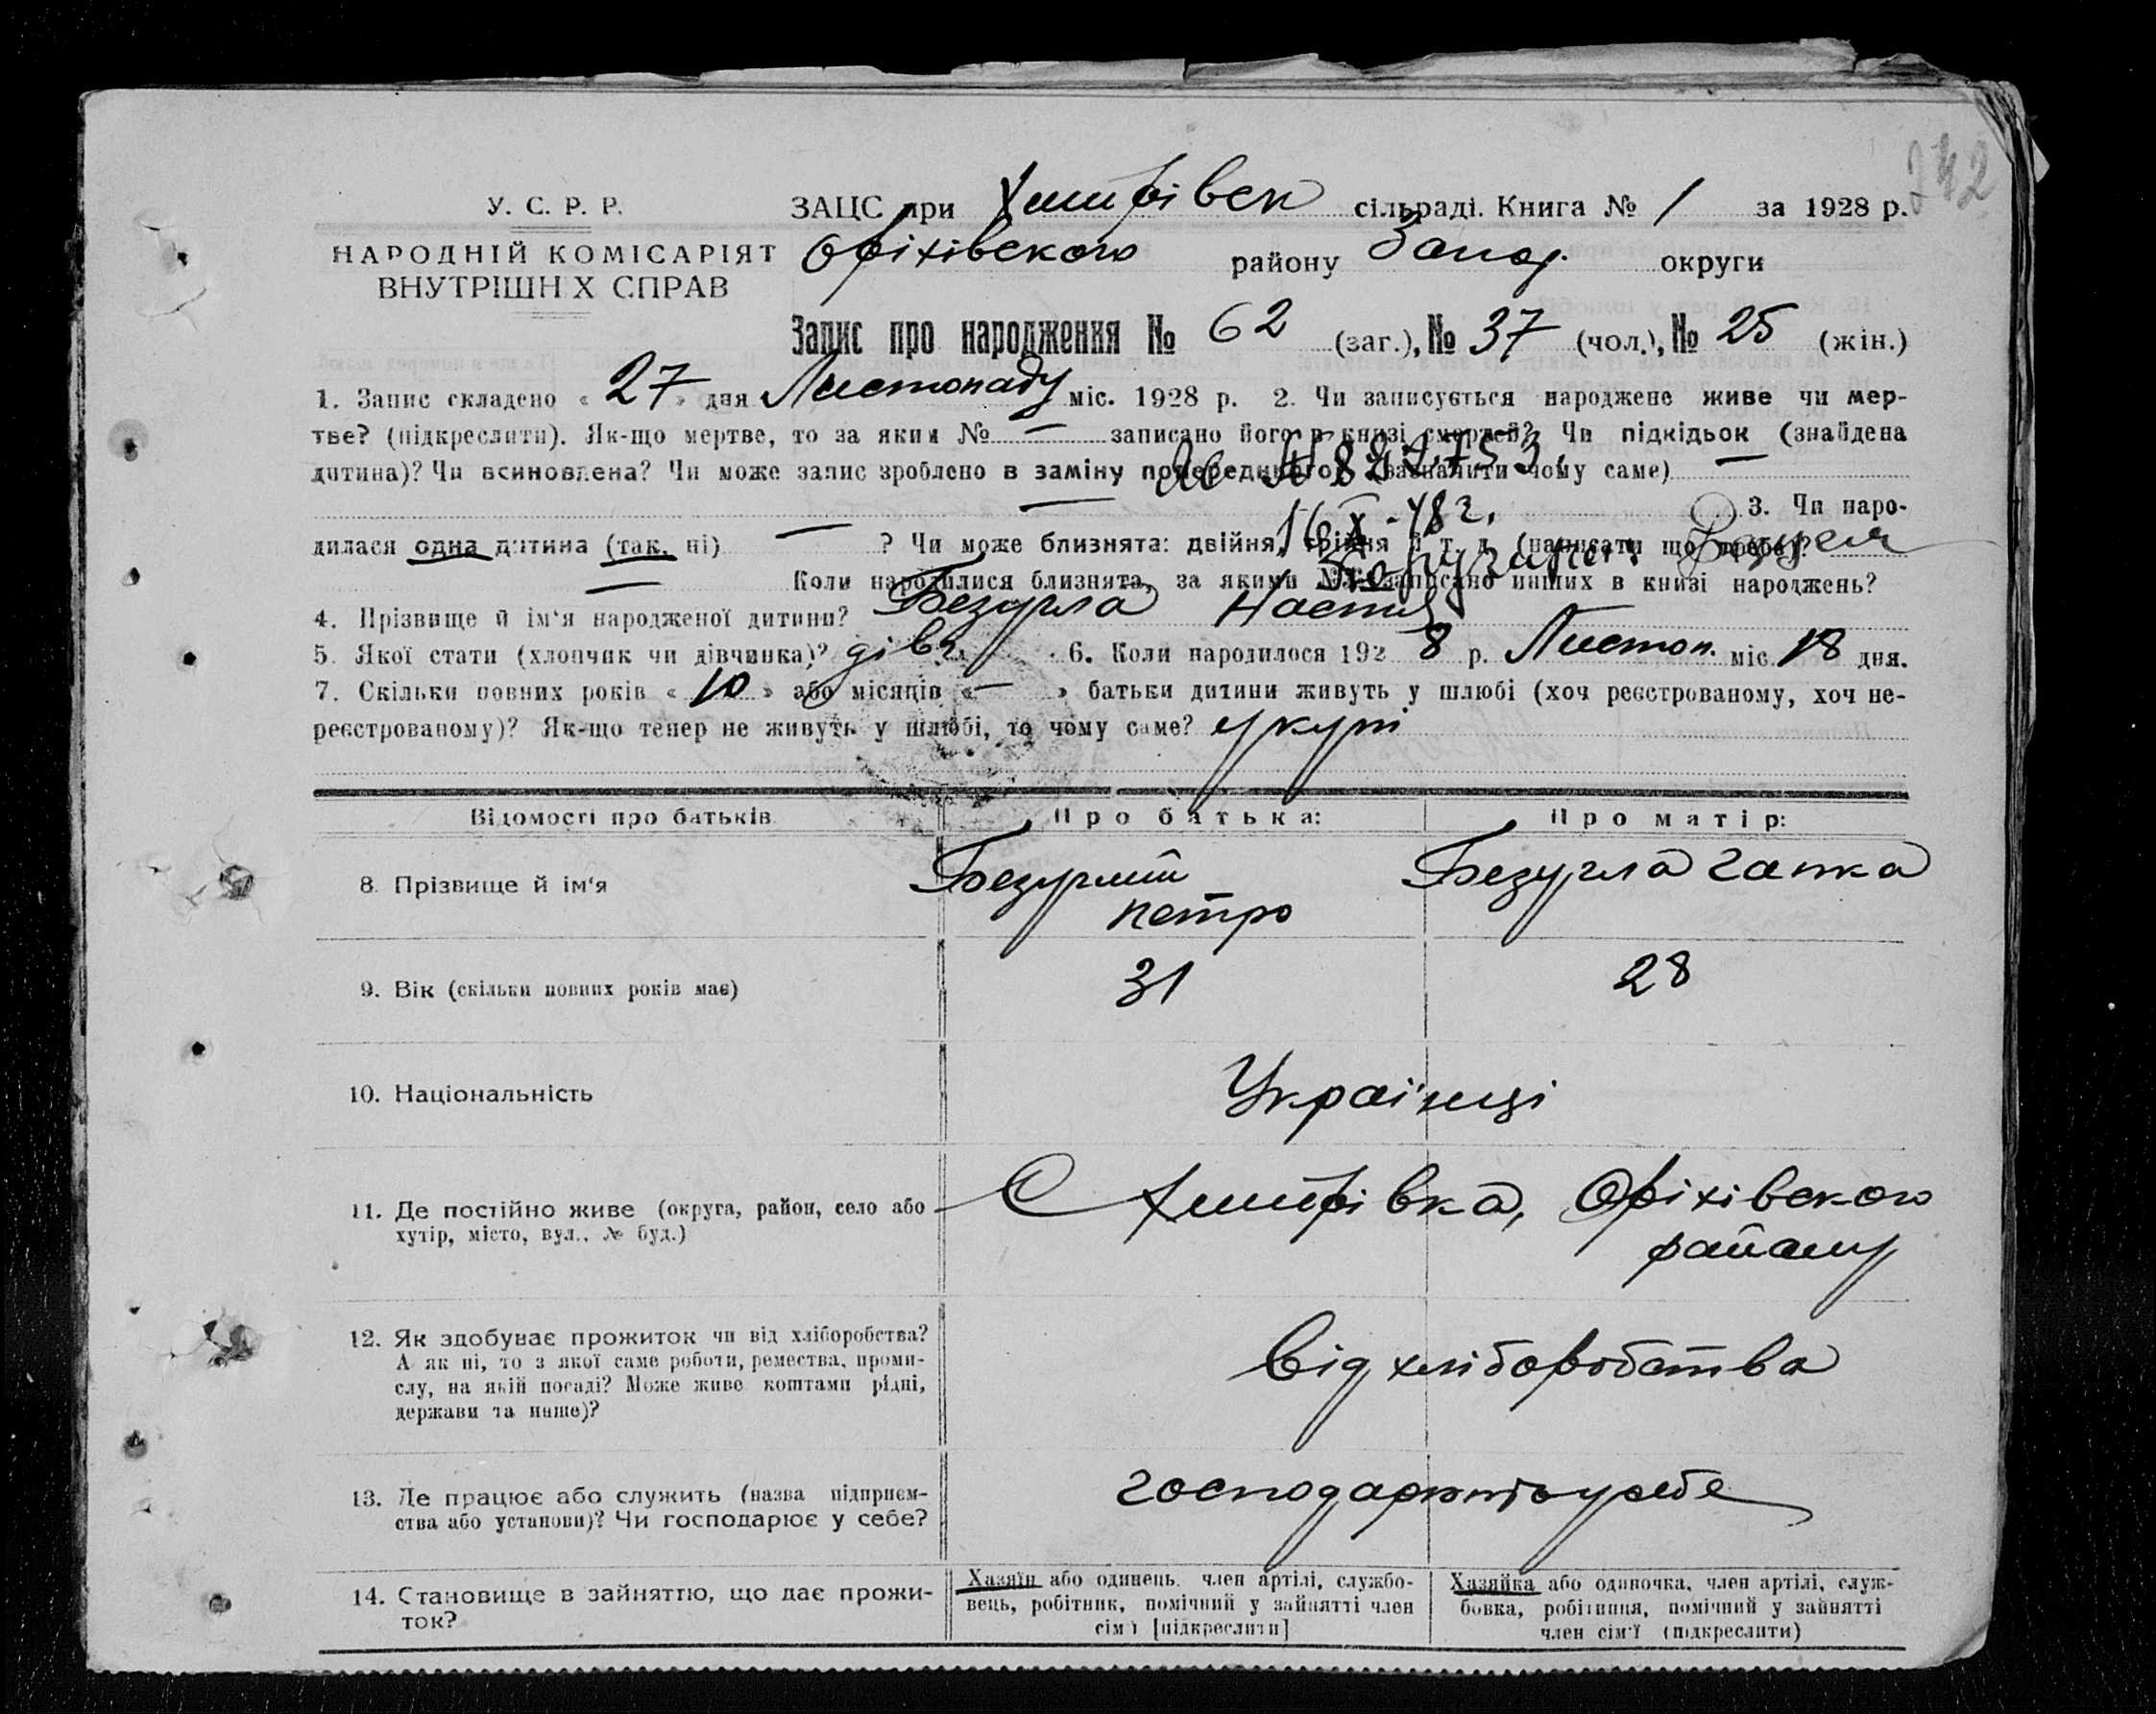 242
У. С. Р. Р.
НАРОДНІЙ КОМІСАРІЯТ
ВНУТРІШН Х СПРАВ
ЗАЦС при Жеребівск сільраді. Книга № 1 за 1928 р.
Оріхівского району Запор. округи
Запис про народження № 62 (заг.), № 37 (чол.), № 25 (жін.)
1. Запис складено « 27 » дня Листопаду міс. 1928 р. 2. Чи записується народжене живе чи мер-
тве? (підкреслити). Як-що мертве, то за яким № — записано його в книзі смертей? Чи підкідьок (знайдена
дитина)? Чи всиновлена? Чи може запис зроблено в заміну попереднього? (зазначити чому саме) —
— 3. Чи наро-
дилася одна дитина (так, ні) — ? Чи може близнята: двійня, трійня й т. д. (написати що треба)?
— Коли народилися близнята, за якими №№ записано инших в книзі народжень?
16 X - 48 г.
4. Прізвище й ім'я народженої дитини? Безугла Настя
5. Якої стати (хлопчик чи дівчинка)? дівч. 6. Коли народилося 1928 р. Листоп. міс. 18 дня.
7. Скільки повних років « 10 » або місяців « — » батьки дитини живуть у шлюбі (хоч реєстрованому, хоч не-
реєстрованому)? Як-що тепер не живуть у шлюбі, то чому саме? укупі
Відомості про батьків
Про батька:
Про матір:
8. Прізвище й ім'я
Безуглий
Петро
Безугла Гапка
9. Вік (скільки повних років має)
31
28
10. Національність
Українці
11. Де постійно живе (округа, район, село або
хутір, місто, вул., № буд.)
С Оріхівского
району
12. Як здобуває прожиток чи від хліборобства?
А як ні, то з якої саме роботи, ремества, проми-
слу, на якій посаді? Може живе коштами рідні,
держави та инше)?
Від хліборобства
13. Де працює або служить (назва підприєм-
ства або установи)? Чи господарює у себе?
господарюють у себе
14. Становище в зайняттю, що дає прожи-
ток?
Хазяїн або одинець, член артілі, службо-
вець, робітник, помічний у зайнятті член
сім'ї [підкреслити]
Хазяйка або одиночка, член артілі, служ-
бовка, робітниця, помічний у зайнятті
член сім'ї (підкреслити)